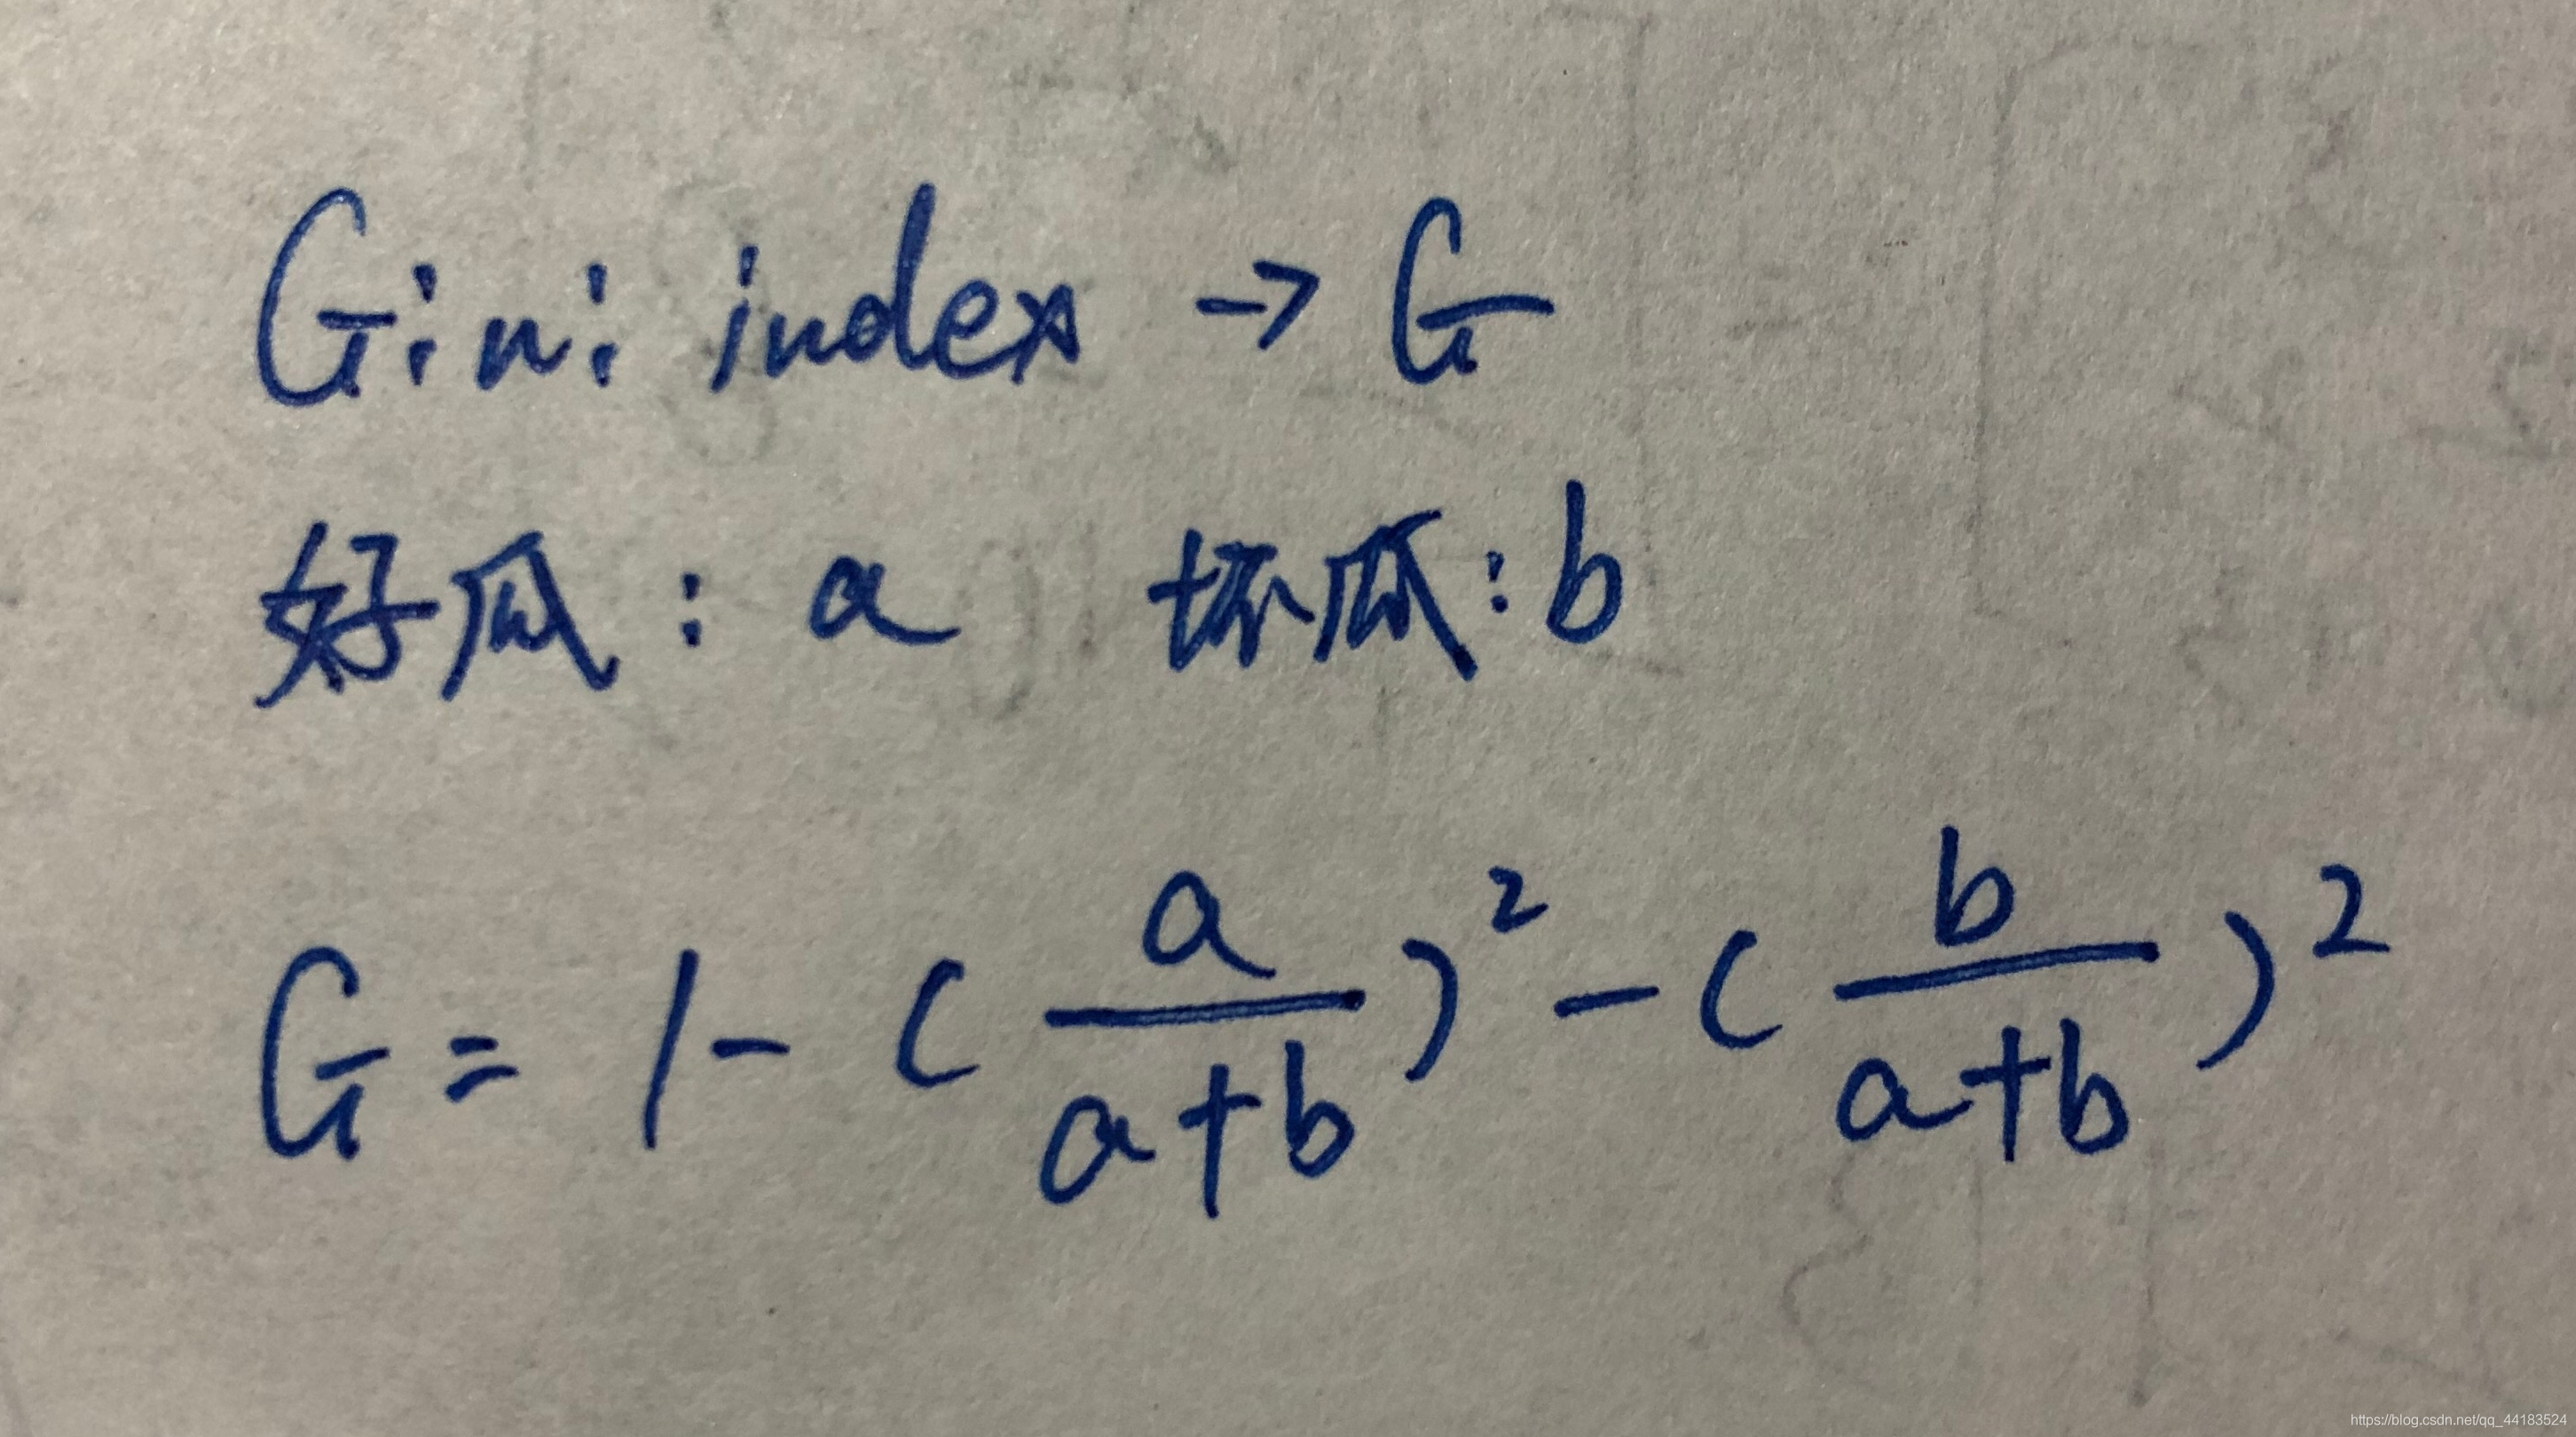 Gini index → G
好瓜: a 坏瓜: b
G = 1 - (a/(a+b))² - (b/(a+b))²
https://blog.csdn.net/qq_44183524